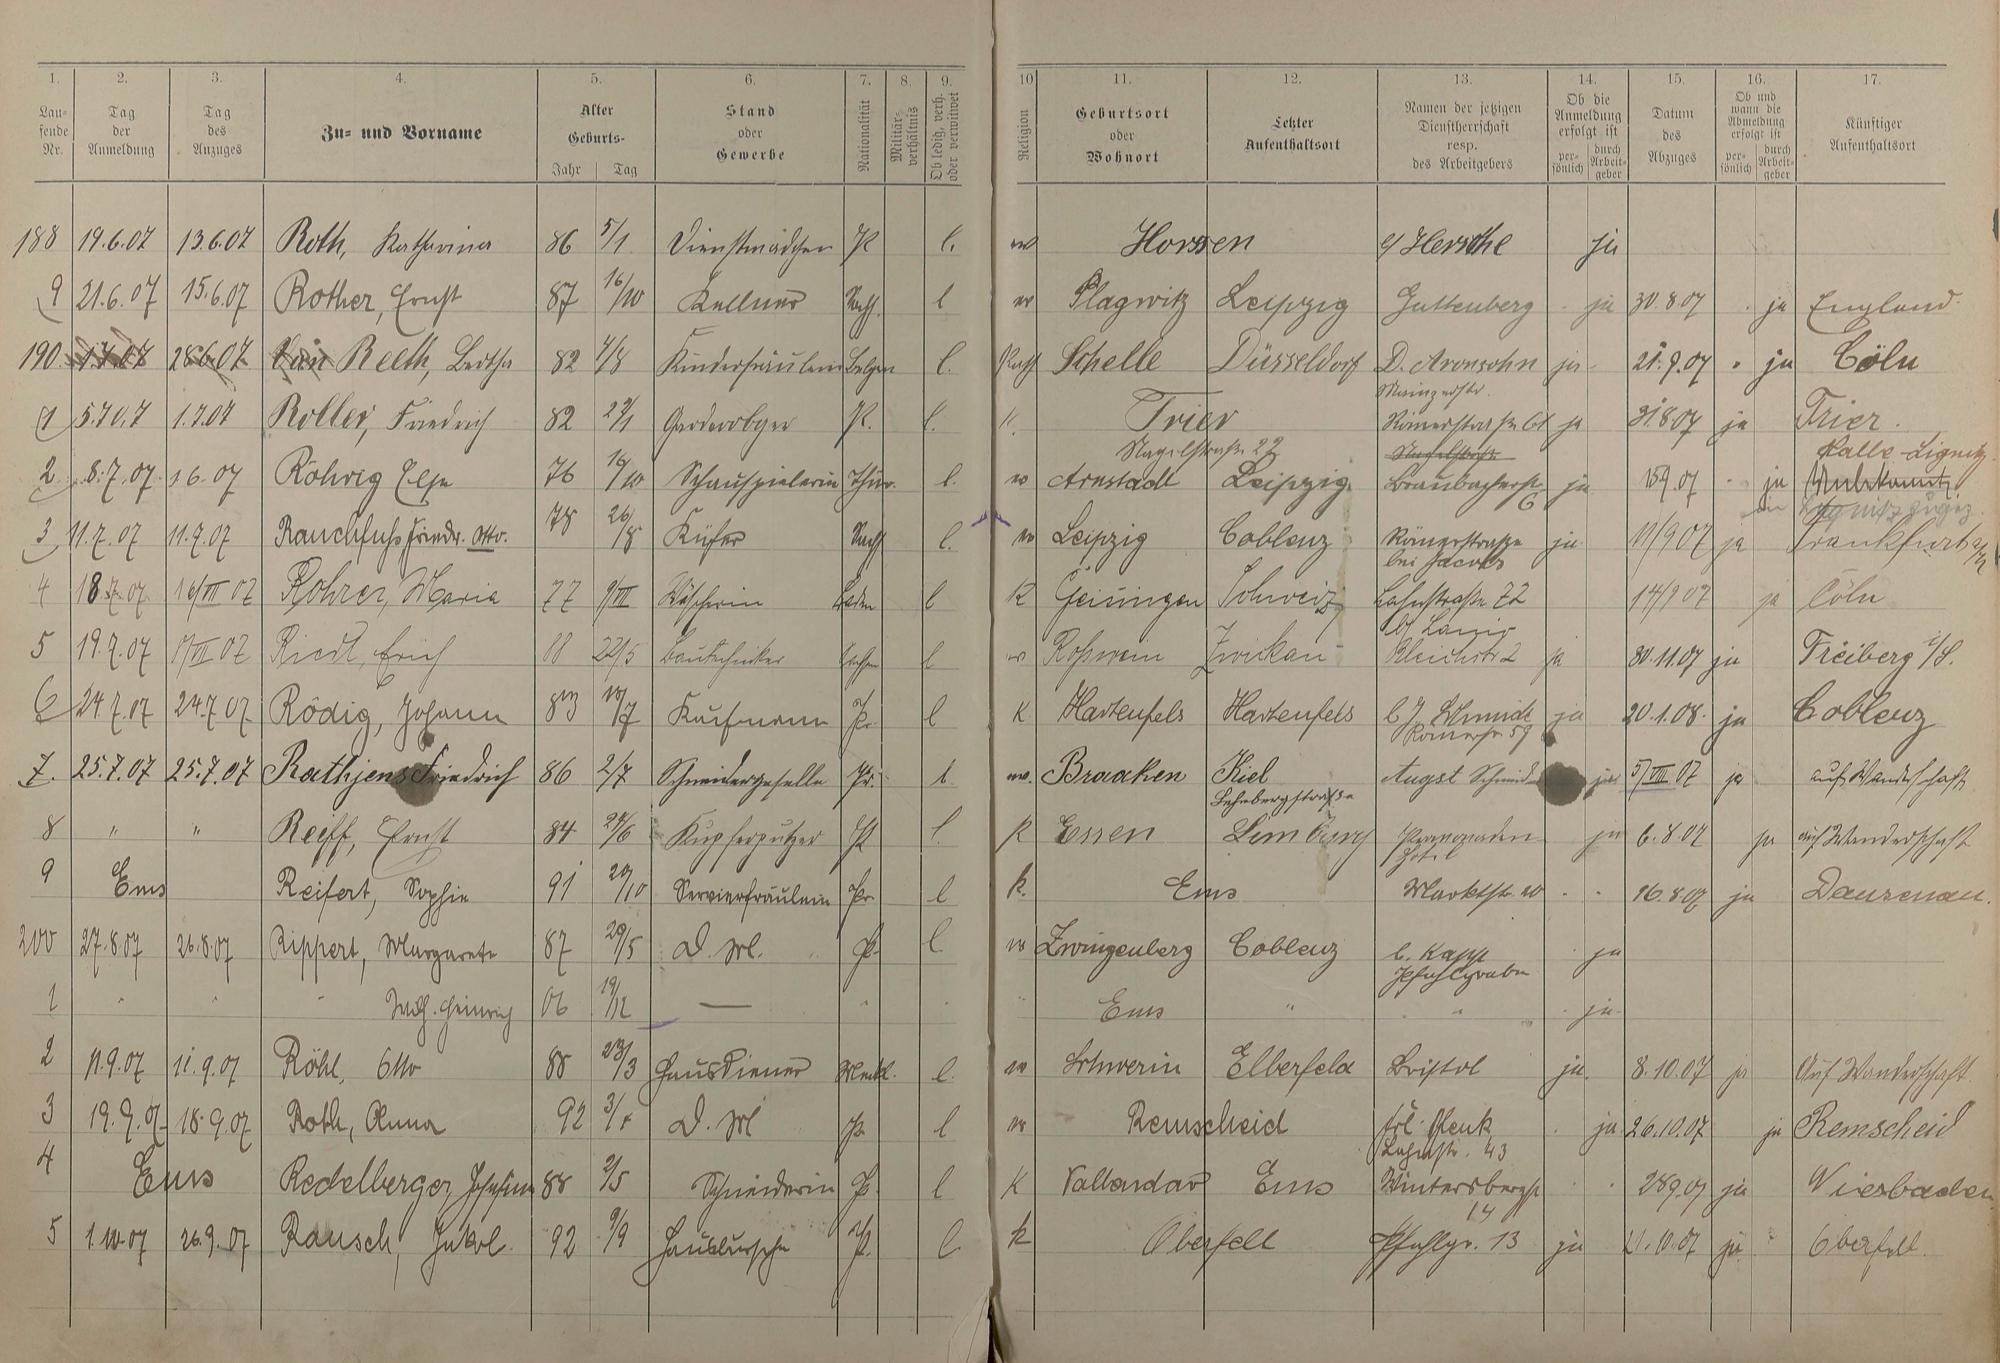 1. 2. 3. 4. 5. 6. 7. 8. 9. 10 11. 12. 13. 14. 15. 16. 17.
Laufende Nr. Tag der Anmeldung Tag des Anzuges Zu- und Vorname Alter Geburts- Jahr Tag Stand oder Gewerbe Nationalität Militärverhältnis Ob ledig, verh. oder verwitwet Religion Geburtsort oder Wohnort Letzter Aufenthaltsort Namen der jetzigen Dienstherrschaft resp. des Arbeitgebers Ob die Anmeldung erfolgt ist persönlich durch Arbeitgeber Datum des Abzuges Ob und wann die Abmeldung erfolgt ist persönlich durch Arbeitgeber Künftiger Aufenthaltsort
188 19.6.07 13.6.07 Roth, Katharina 86 5/1 Dienstmädchen l. Horssen ja
9 21.6.07 15.6.07 Rother, Ernst 87 16/10 Kellner l Plagwitz Leipzig Guttenberg ja 30.8.07 ja England
190 1.7.07 28.6.07 Van Reeth, Bertha 82 4/8 Kinderfräulein Belgien l. Kath Schelle Düsseldorf D. Aronsohn ja 21.9.07 ja Cöln
Mainzerstr.
1 5.7.07 1.7.07 Roller, Friedrich 82 l. K. Trier Römerstraße 61 ja 31.8.07 ja Trier.
Nagelstraße 22 Halle-Lignitz
2 8.7.07 1.6.07 Röhrig Else 76 16/10 Schauspielerin Thür. l. Arnstadt Leipzig Braubacherstr. 6 ja 15.9.07 ja Unbekannt
3 11.7.07 11.7.07 Rauchfuhs Friedr. Otto. 78 26/8 Küfer Sachs l. Leipzig Coblenz Römerstraße ja 11/9 07 ja Frankfurt a/M
bei Jacobs
4 18.7.07 16/VII 07 Rohrer, Maria 77 9/VII Wäscherin Baden l K Geisingen Schweiz Lahnstraße 72 14/9 07 ja Cöln
5 19.7.07 Riedl, Erich 88 22/5 Bautechniker Sachsen l Roßwein Zwickau Bleichstr 2 ja 30.11.07 ja Freiberg i/S.
6 24.7.07 24.7.07 Rödig, Johann 83 10/7 Kaufmann Pr. l K Hartenfels Hartenfels b J. Schmidt ja 20.1.08. ja Coblenz
Römerstr 59
7. 25.7.07 25.7.07 Rathjens Friedrich 86 2/7 Schneidergeselle Pr. l. ev. Braaken Kiel August Schmidt ja 5/VIII 07 ja auf Wanderschaft
8 " " Reiff, Ernst 84 24/6 Kupferputzer l. K Essen Limburg Promenaden Hotel ja 6.8.07 ja auf Wanderschaft
9 Ems Reifert, Sophie 91 20/10 Servierfräulein Pr l K. Ems Marktstr. 16.8.07 ja Dausenau.
200 27.8.07 26.8.07 Rippert, Margarete 87 29/5 D. M. P. l. Zwingenberg Coblenz b. Kapp ja
Pfahlgraben
1 " " " Wilh. Heinrich 06 19/12 — " " Ems " " ja.
2 11.9.07 11.9.07 Röhl, Otto 88 23/3 Hausdiener Meckl. l. Schwerin Elberfeld Bristol ja. 8.10.07 ja Auf Wanderschaft
3 19.9.07 18.9.07 Roth, Anna 92 D. M l Remscheid Frl. ja 26.10.07 ja Remscheid
Lahnstr. 43
4 Ems Redelberger, Josefine 88 2/5 Schneiderin P. l K Vallendar Ems Wintersbergstr 14 28.9.07 ja Wiesbaden
5 1.10.07 26.9.07 Rausch, Jakob. 92 9/9 Hausbursche P. l. K Oberfell Pfahlgr. 13 ja 21.10.07 ja Oberfell.